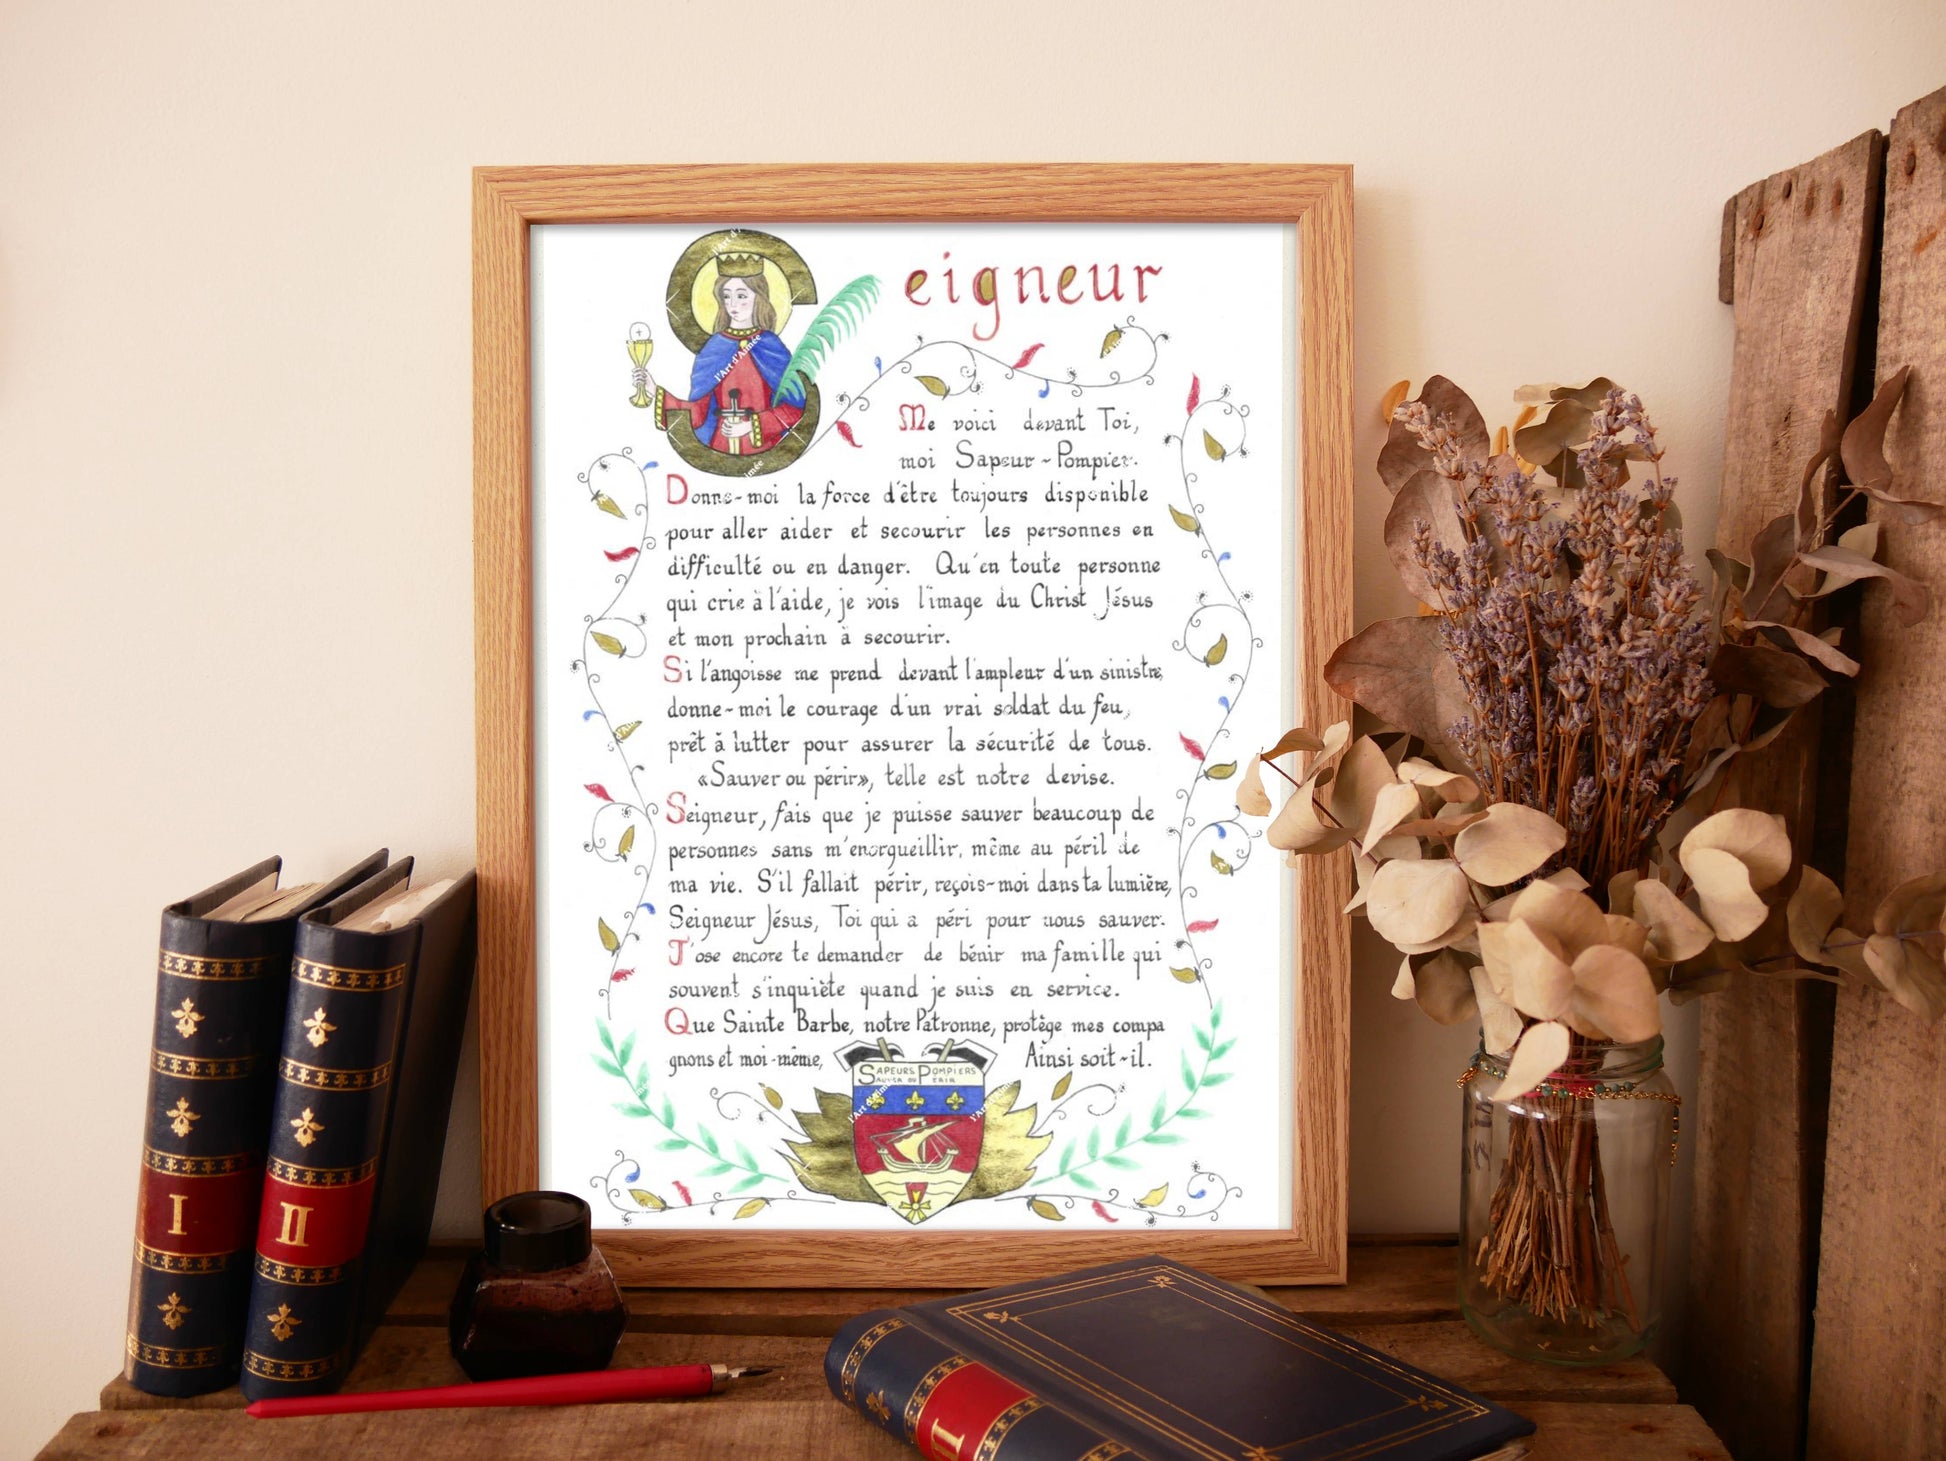 Seigneur
Me voici devant Toi,
moi Sapeur-Pompier.
Donne-moi la force d'être toujours disponible
pour aller aider et secourir les personnes en
difficulté ou en danger. Qu'en toute personne
qui crie à l'aide, je vois l'image du Christ Jésus
et mon prochain à secourir.
Si l'angoisse me prend devant l'ampleur d'un sinistre,
donne-moi le courage d'un vrai soldat du feu,
prêt à lutter pour assurer la sécurité de tous.
«Sauver ou périr», telle est notre devise.
Seigneur, fais que je puisse sauver beaucoup de
personnes sans m'enorgueillir, même au péril de
ma vie. S'il fallait périr, reçois-moi dans ta lumière,
Seigneur Jésus, Toi qui a péri pour nous sauver.
J'ose encore te demander de bénir ma famille qui
souvent s'inquiète quand je suis en service.
Que Sainte Barbe, notre Patronne, protège mes compa
gnons et moi-même, Ainsi soit-il.
SAPEURS POMPIERS
SAUVER OU PÉRIR
l'Art d'Aimée
I
II
II